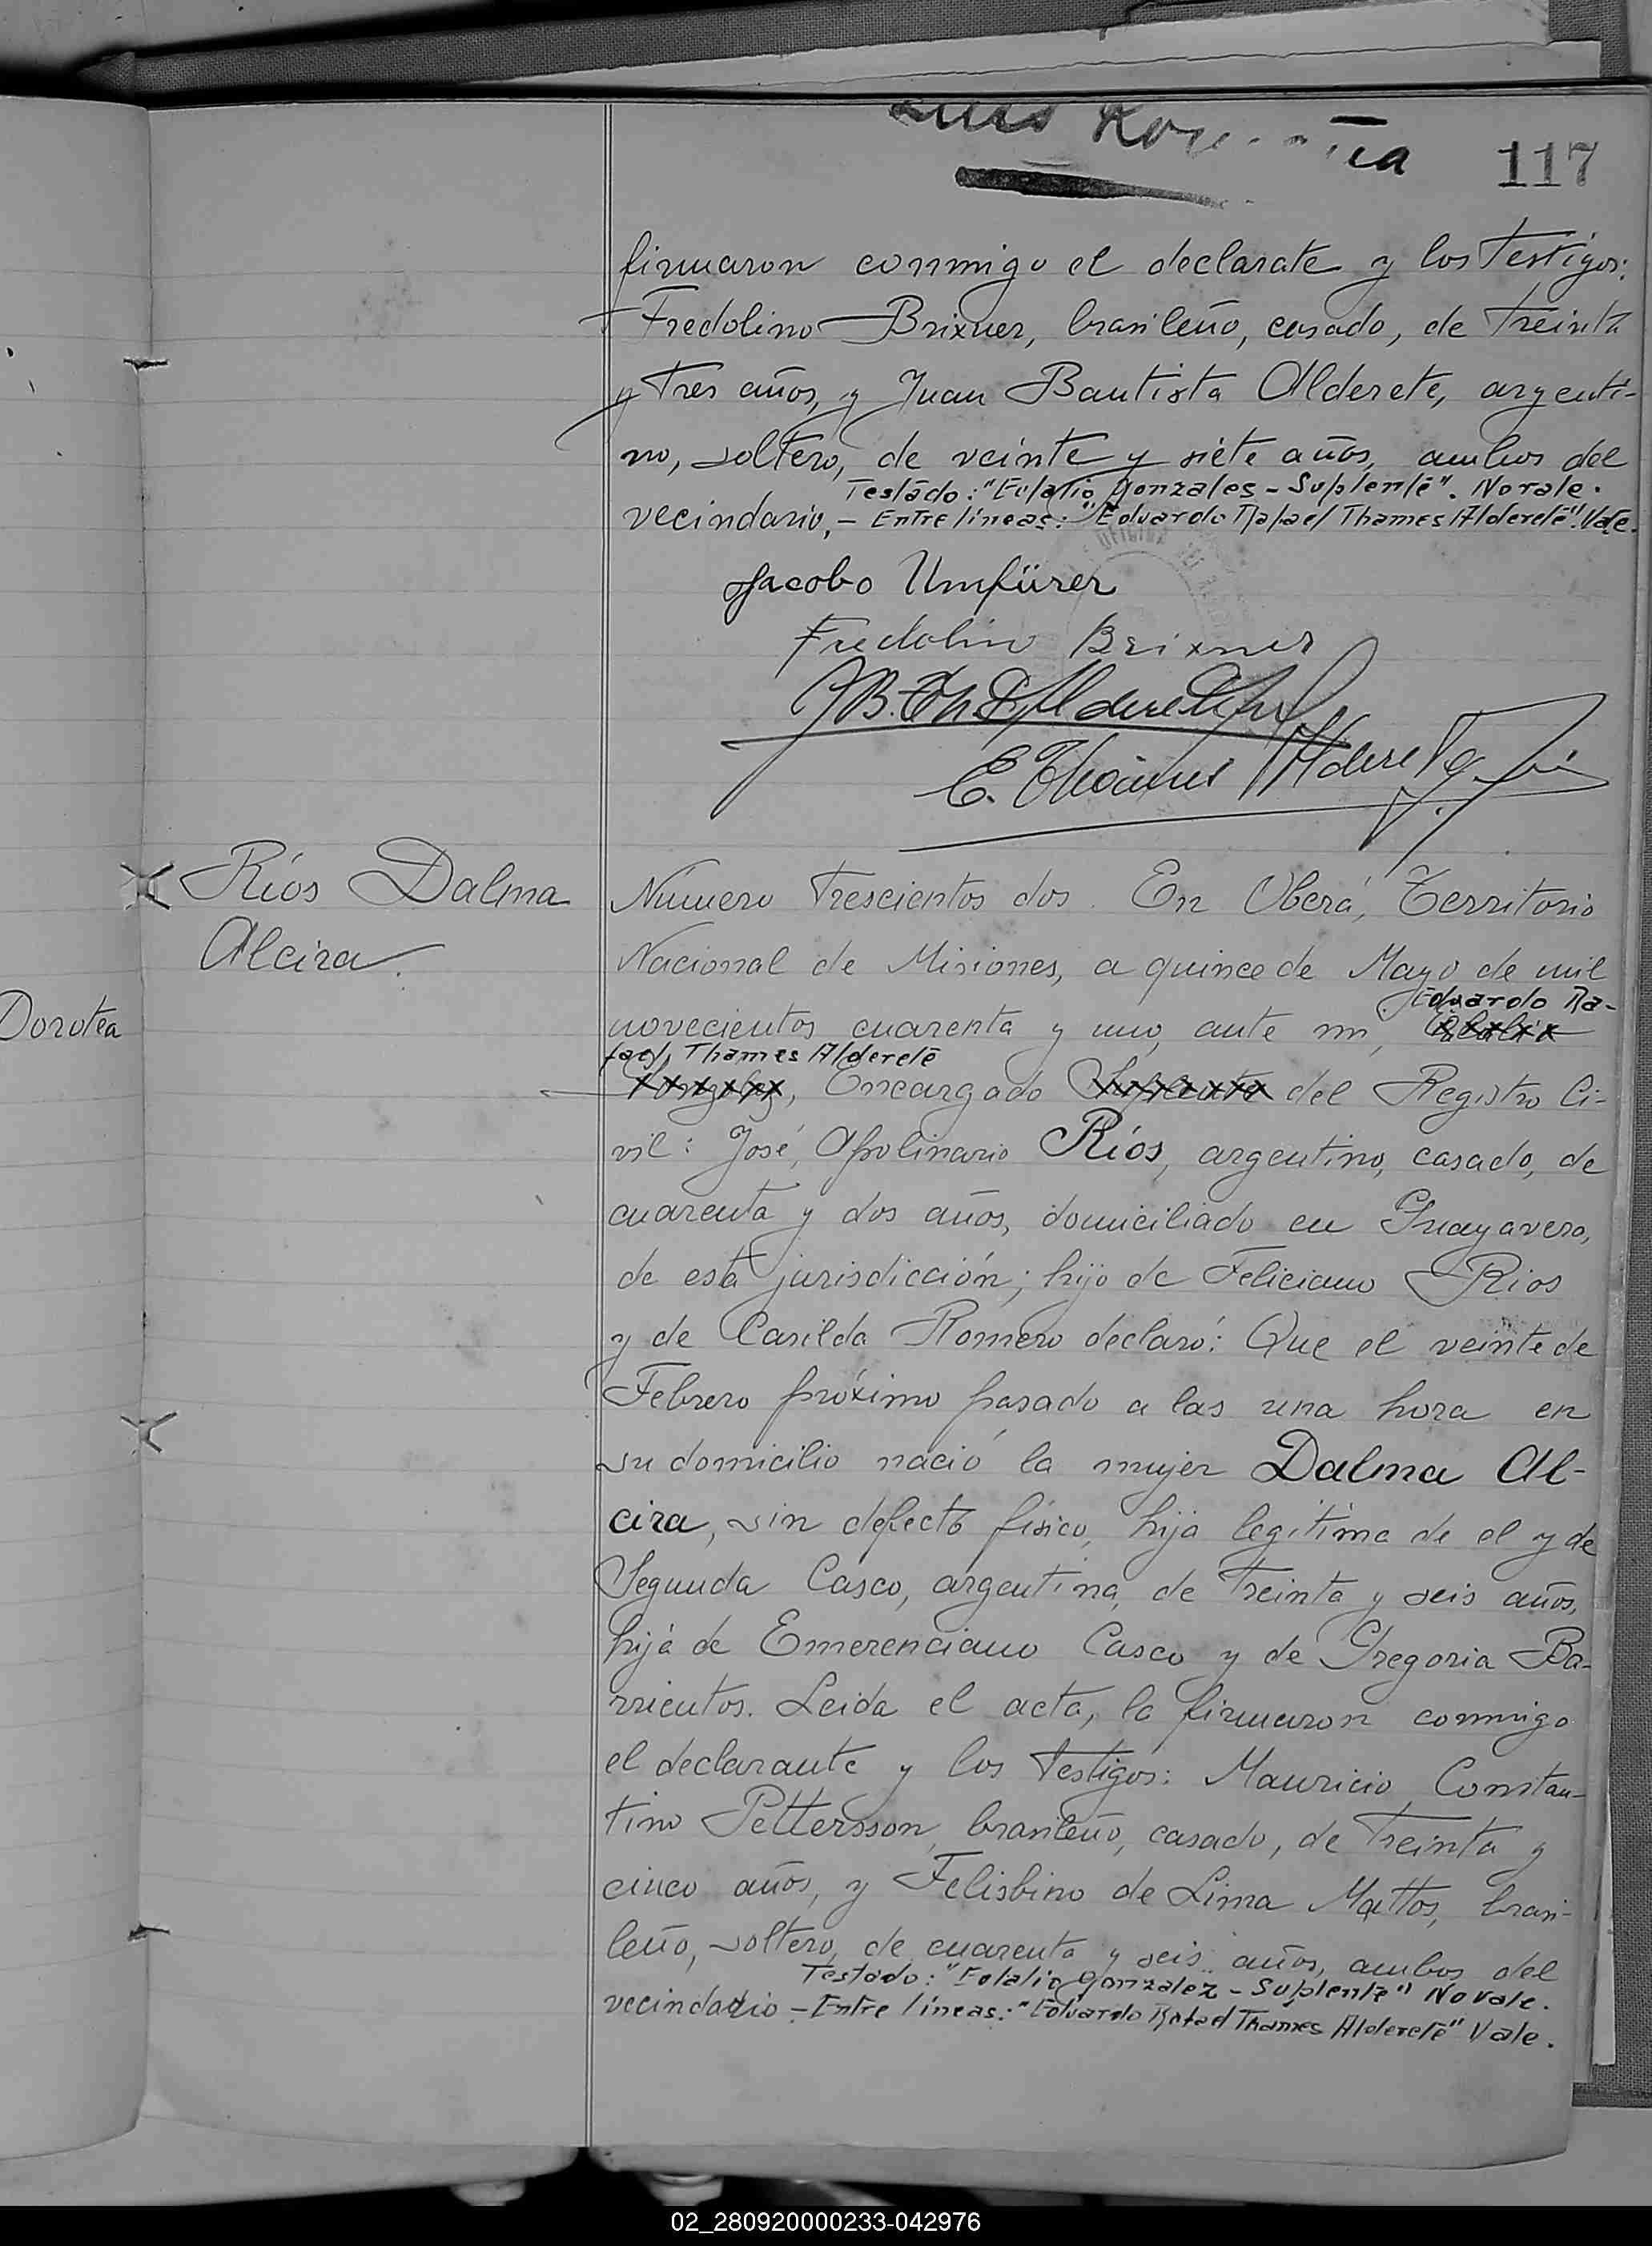 117
firmaron conmigo el declarate y los testigos:
Fredolino Brixner, brasileño, casado, de treinta
y tres años, y Juan Bautista Alderete, argenti-
no, soltero, de veinte y siete años, ambos del
Testado: "Eulalio Gonzales - Suplente". No vale.
vecindario, - Entre líneas: "Eduardo Rafael Thames Alderete". Vale.
Jacobo Umfürer
Fredolino Brixner
J B. Th. Alderete
E. Thames Alderete
Ríos Dalma
Alcira.
Dorotea
Número trescientos dos. En Oberá, Territorio
Nacional de Misiones, a quince de Mayo de mil
Eduardo Ra-
novecientos cuarenta y uno, ante mi, Eulalio
fael Thames Alderete
Gonzalez, Encargado Suplente del Registro Ci-
vil: José Apolinario Ríos, argentino, casado, de
cuarenta y dos años, domiciliado en Guayavero,
de esta jurisdicción; hijo de Feliciano Rios
y de Casilda Romero declaró: Que el veinte de
Febrero próximo pasado a las una hora en
su domicilio nació la mujer Dalma Al-
cira, sin defecto físico, hija legítima de el y de
Segunda Casco, argentina, de treinta y seis años,
hija de Emerenciano Casco y de Gregoria Ba-
rrientos. Leida el acta, la firmaron conmigo
el declarante y los testigos: Mauricio Constan-
tino Pettersson, brasileño, casado, de treinta y
cinco años, y Felisbino de Lima Mattos, brasi-
leño, soltero, de cuarenta y seis años, ambos del
Testado: "Eulalio Gonzalez - Suplente" No vale.
vecindario - Entre líneas: "Eduardo Rafael Thames Alderete" Vale.
02_280920000233-042976